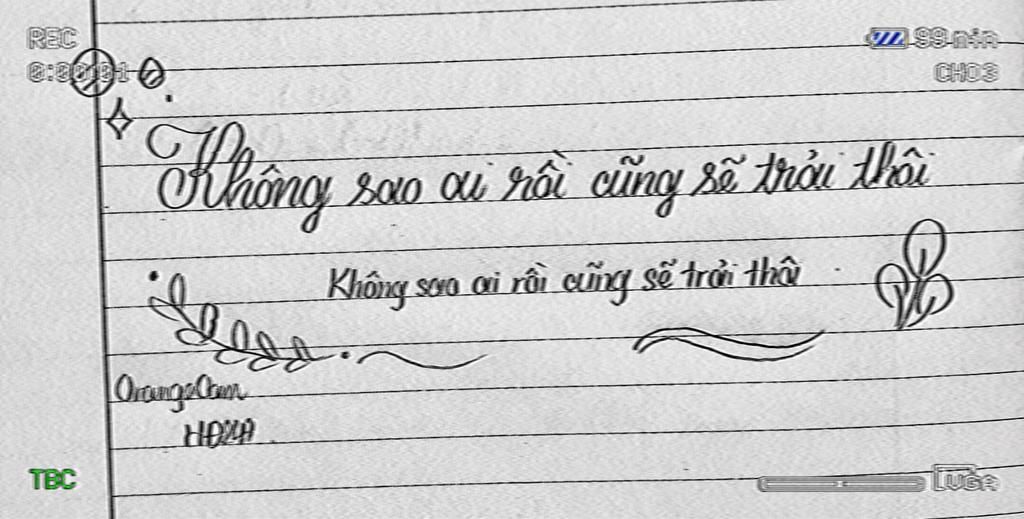 REC
99 min
0:00:01
CH03
Không sao ai rồi cũng sẽ trải thôi
Không sao ai rồi cũng sẽ trải thôi
OrangeCam
TBC